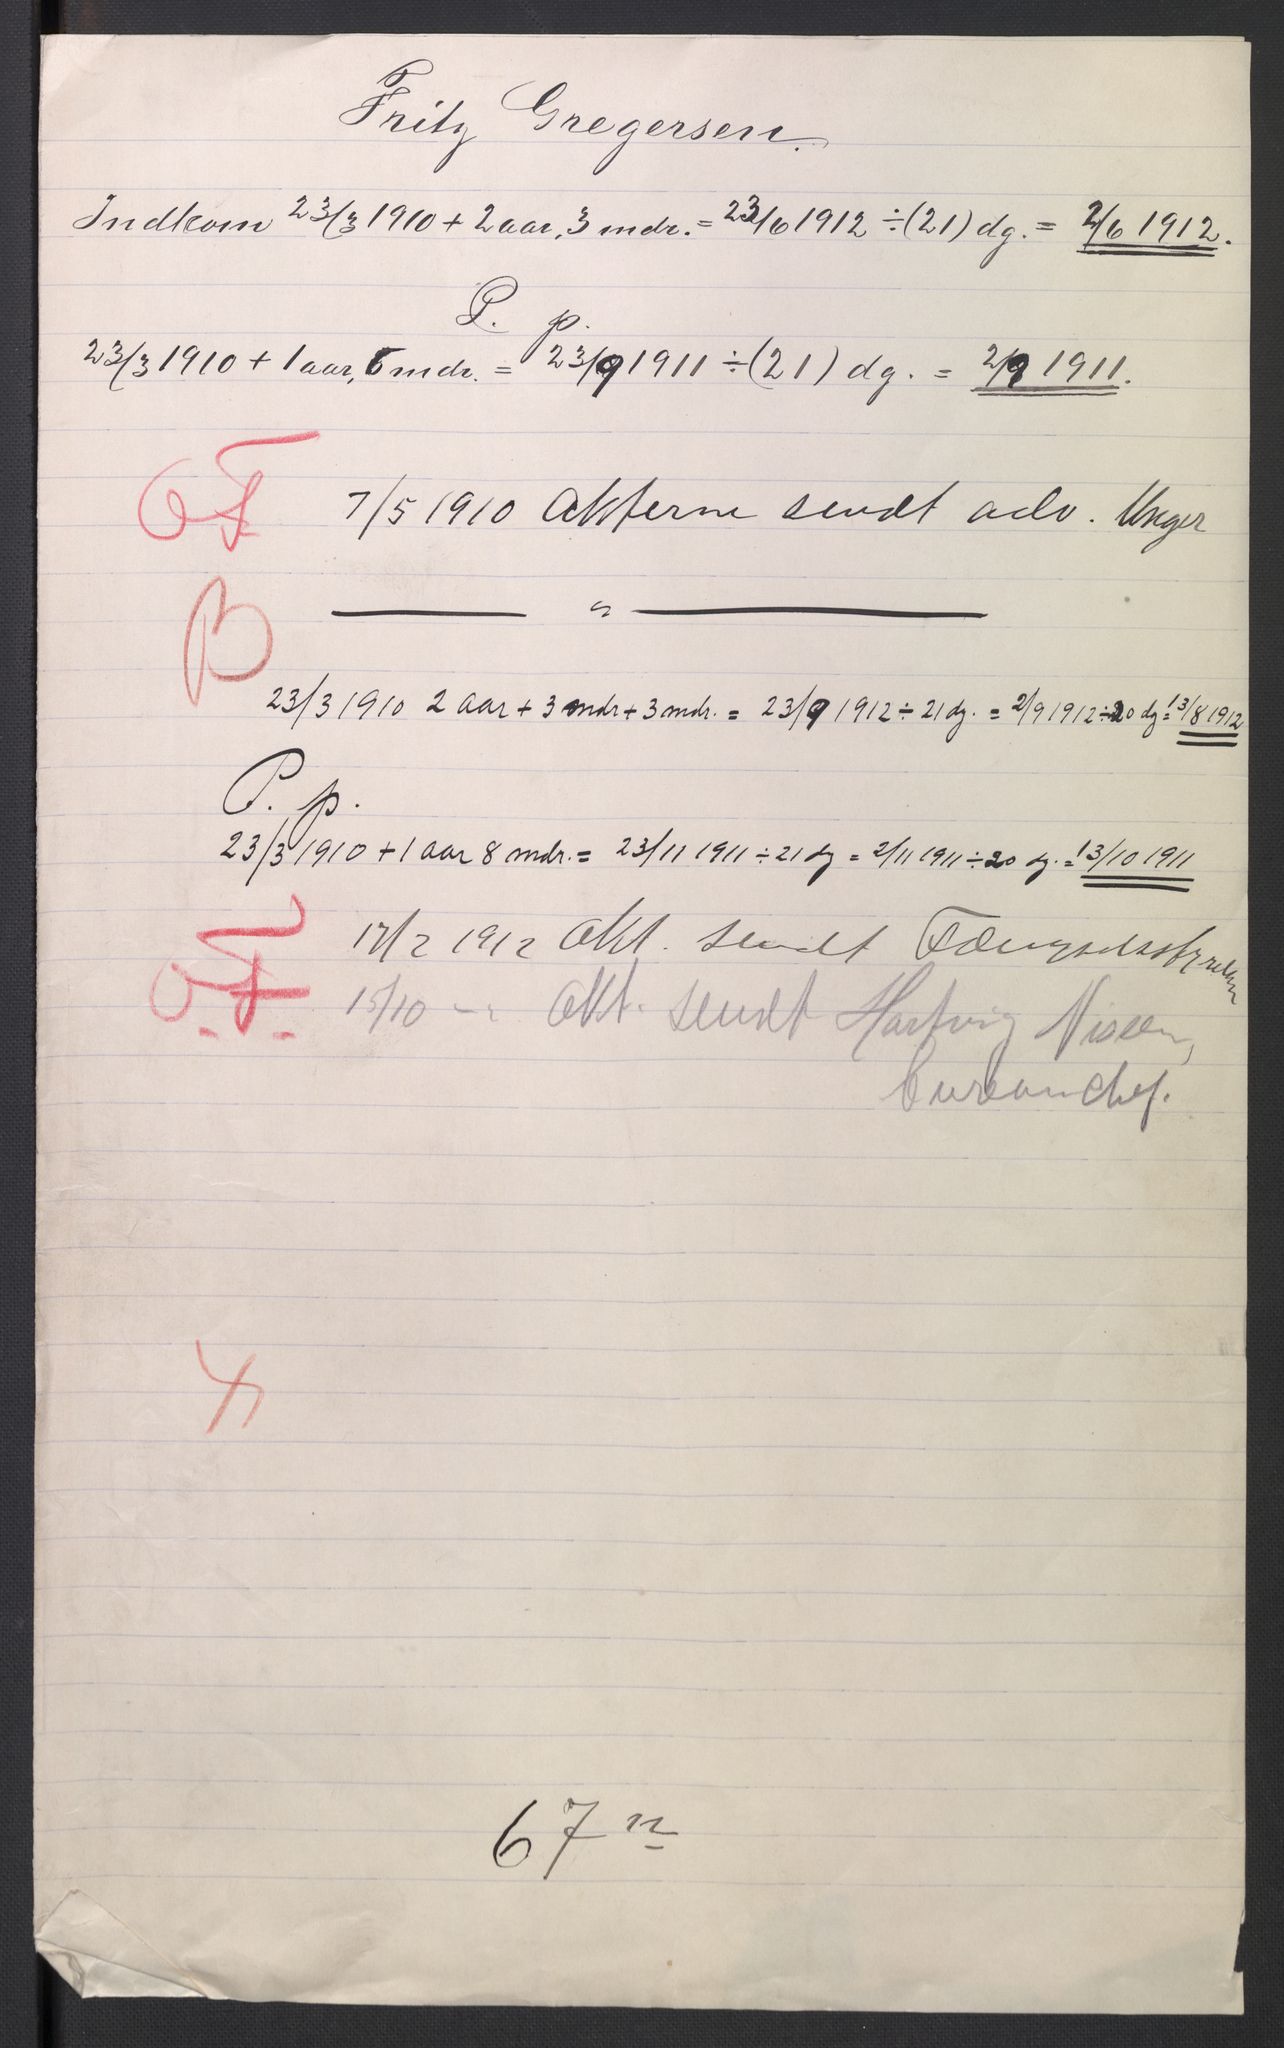 Fritz Gregersen.
Indkom 23/3 1910 + 2 aar, 3 mdr. = 23/6 1912 ÷ (21) dg. = 2/6 1912.
P. p.
23/3 1910 + 1 aar, 6 mdr. = 23/9 1911 ÷ (21) dg. = 2/9 1911.
OF 7/5 1910 Akterne sendt adv. Unger
B
23/3 1910 2 aar + 3 mdr + 3 mdr. = 23/9 1912 ÷ 21 dg. = 2/9 1912 ÷ 20 dg = 13/8 1912
P. p.
23/3 1910 + 1 aar 8 mdr. = 23/11 1911 ÷ 21 dg = 2/11 1911 ÷ 20 dg. = 13/10 1911
O.F. 17/2 1912 Akt. sendt Fængselsstyrelsen
15/10 — " Akt. sendt Hartvig Nissen,
bureauchef.
67